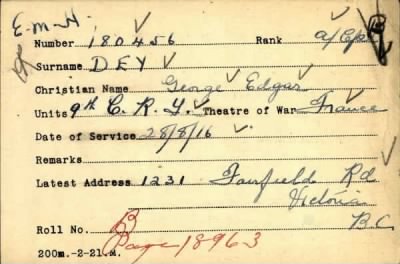 E.M.H
Number 180456 Rank A/Cpl
Surname DEY
Christian Name George Edgar
Units 9th C.R.T. Theatre of War France
Date of Service 28/8/16
Remarks
Latest Address 1231 Fairfield Rd
Victoria
B.C.
Roll No. B
Page 18963
200m.-2-21.M.